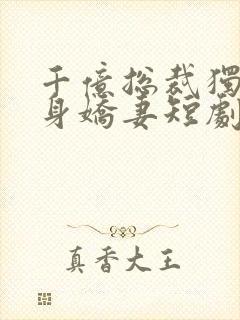 千億总裁獨
身嬌妻短劇
真香大王